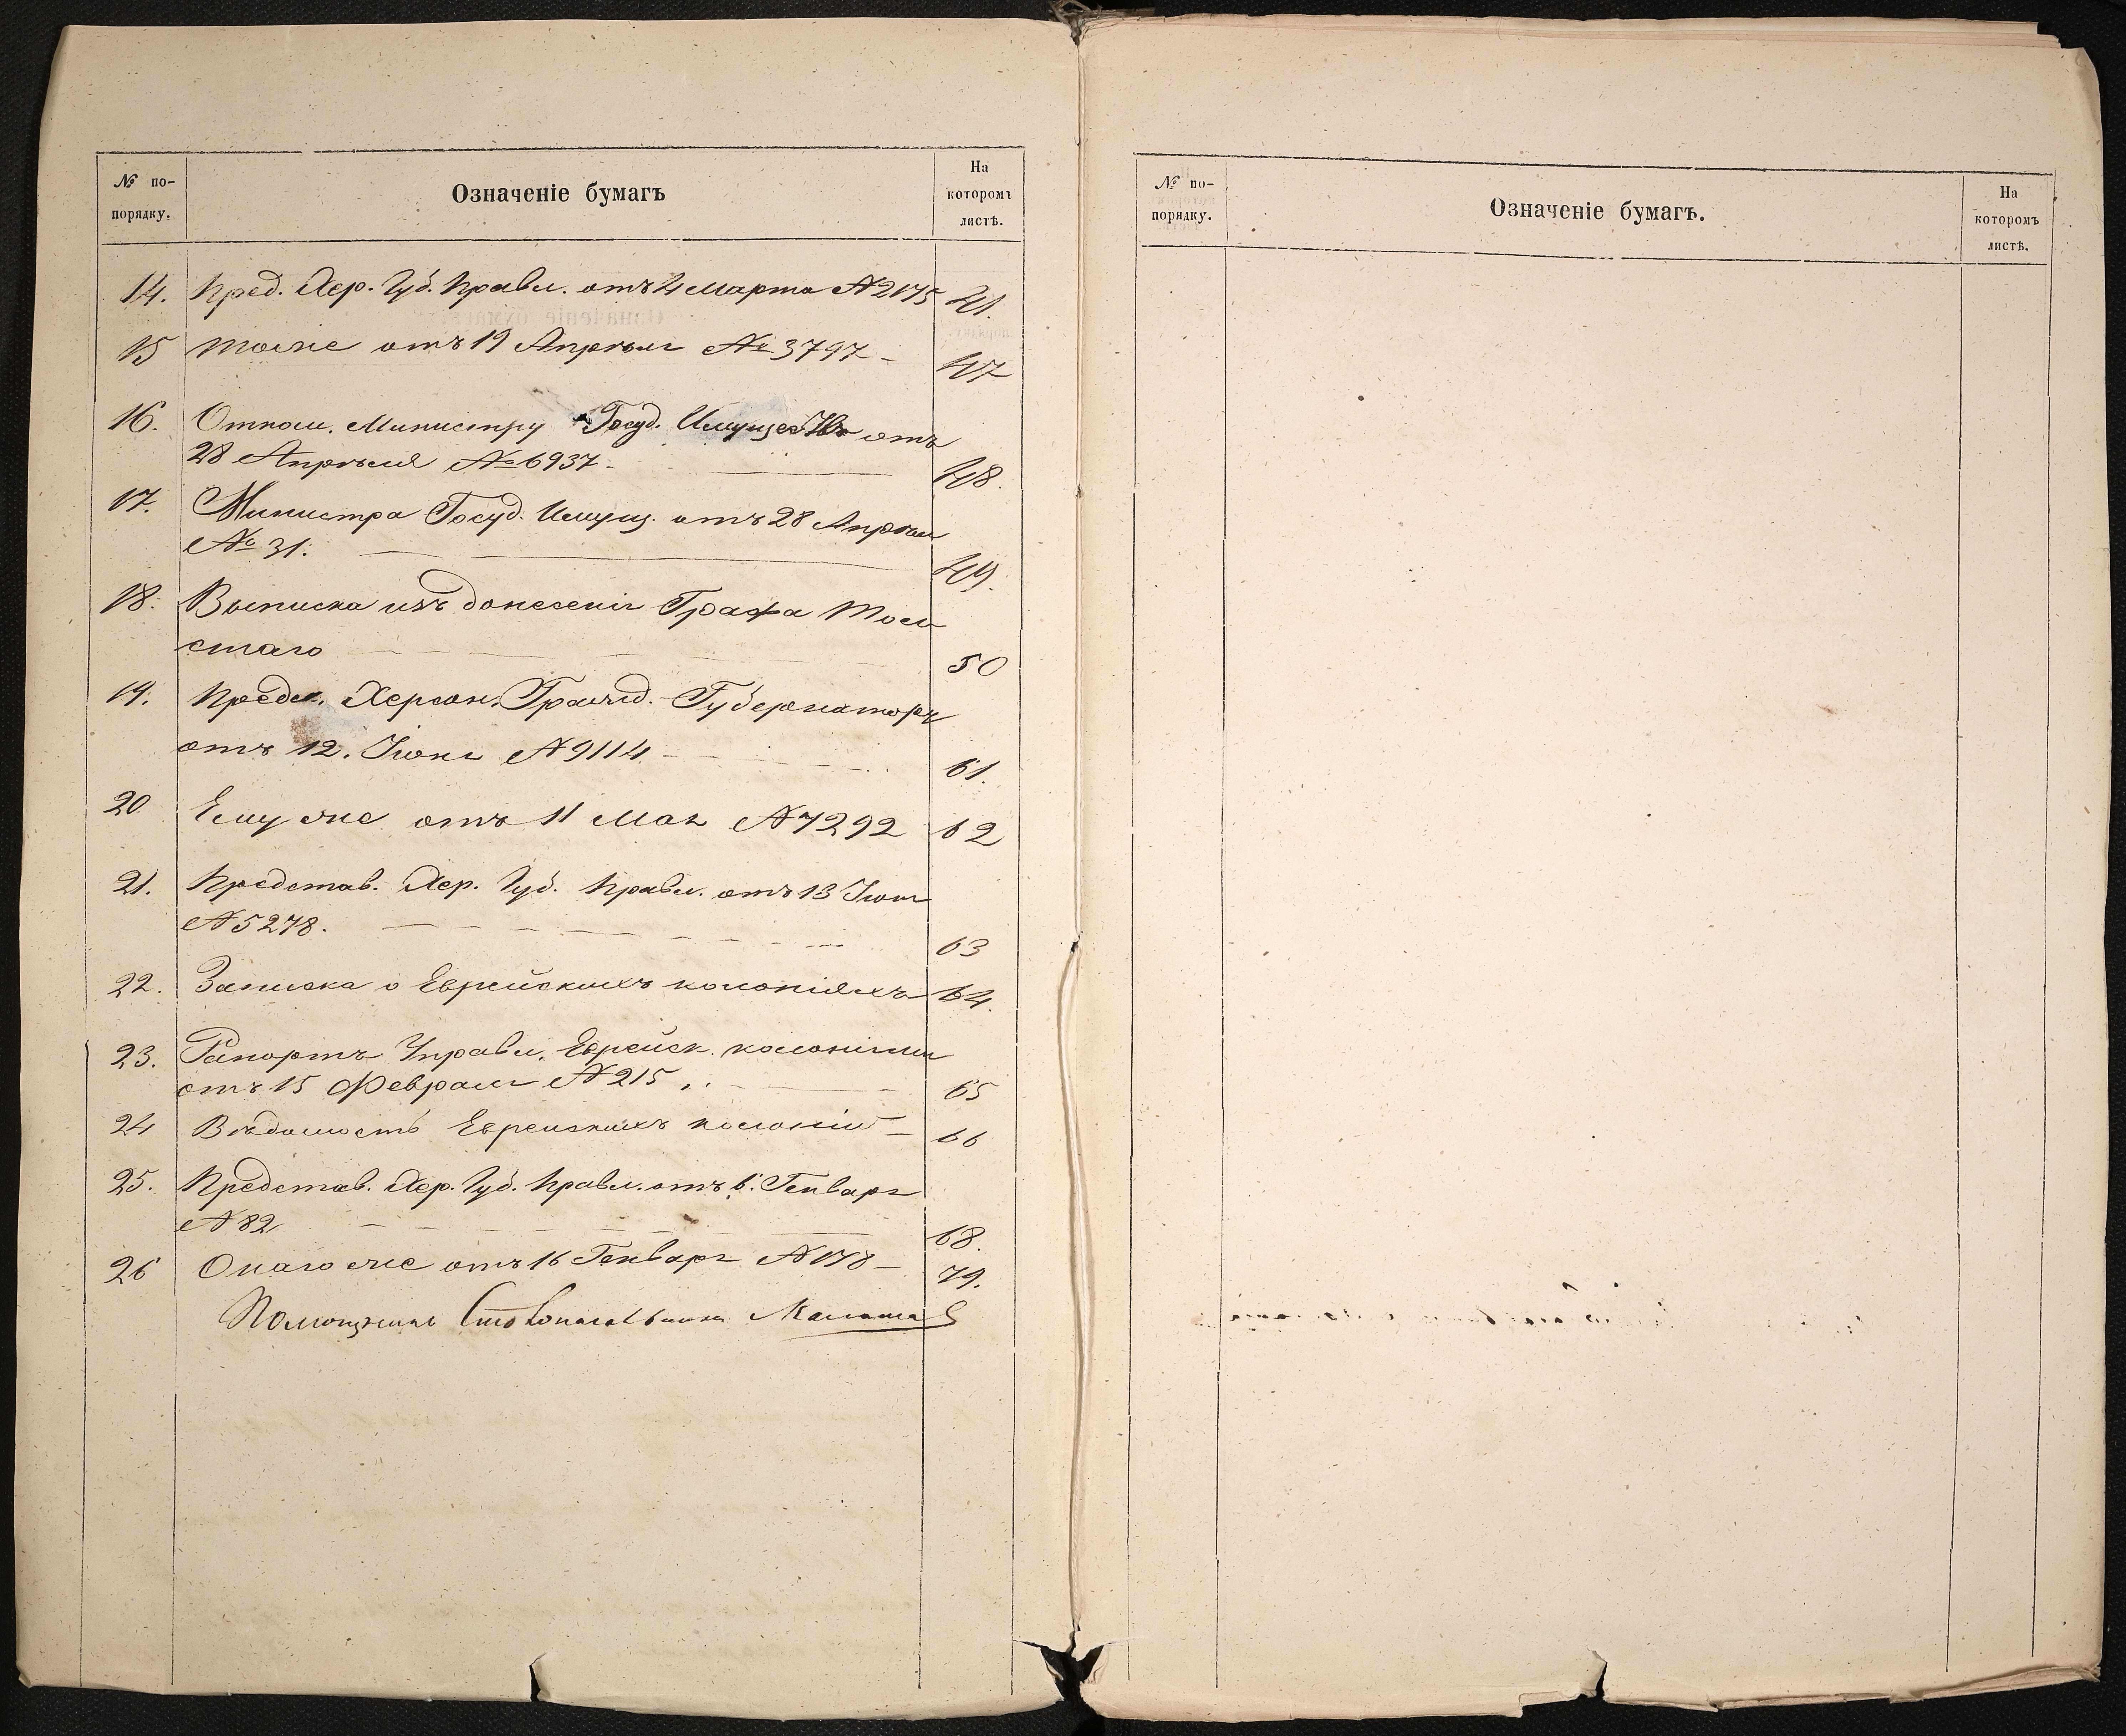 № по-
порядку.
Означеніе бумагъ
На
которомъ
листѣ.
14. Пред. Хер. Губ. Правл. отъ 4 Марта № 2175 41.
15 тоже отъ 19 Апрѣля № 3797 - 47
16. Отнош. Министру Госуд. Имуществъ отъ
28 Апрѣля № 6937 - 48.
17. Министра Госуд. Имущ. отъ 28 Апрѣля
№ 31. 49.
18. Выписка изъ донесенія Графа Тол
стаго 50
19. Предл. Херсон. Гражд. Губернатору
отъ 12. Іюня № 9114 - 61.
20 Ему же отъ 11 Мая № 7292 62
21. Представ. Хер. Губ. Правл. отъ 13 Іюня
№ 5278. 63
22. Записка о Еврейскихъ колоніяхъ 64.
23. Рапортъ Управл. Еврейск. колоніями
отъ 15 Февраля № 215 65
24 Вѣдомость Еврейскихъ колоній - 66
25. Представ. Хер. Губ. Правл. отъ 6. Генваря
№ 82 68.
26 Онаго же отъ 16 Генваря № 178 - 79.
Помощникъ Столоначальника
№ по-
порядку.
Означеніе бумагъ.
На
которомъ
листѣ.